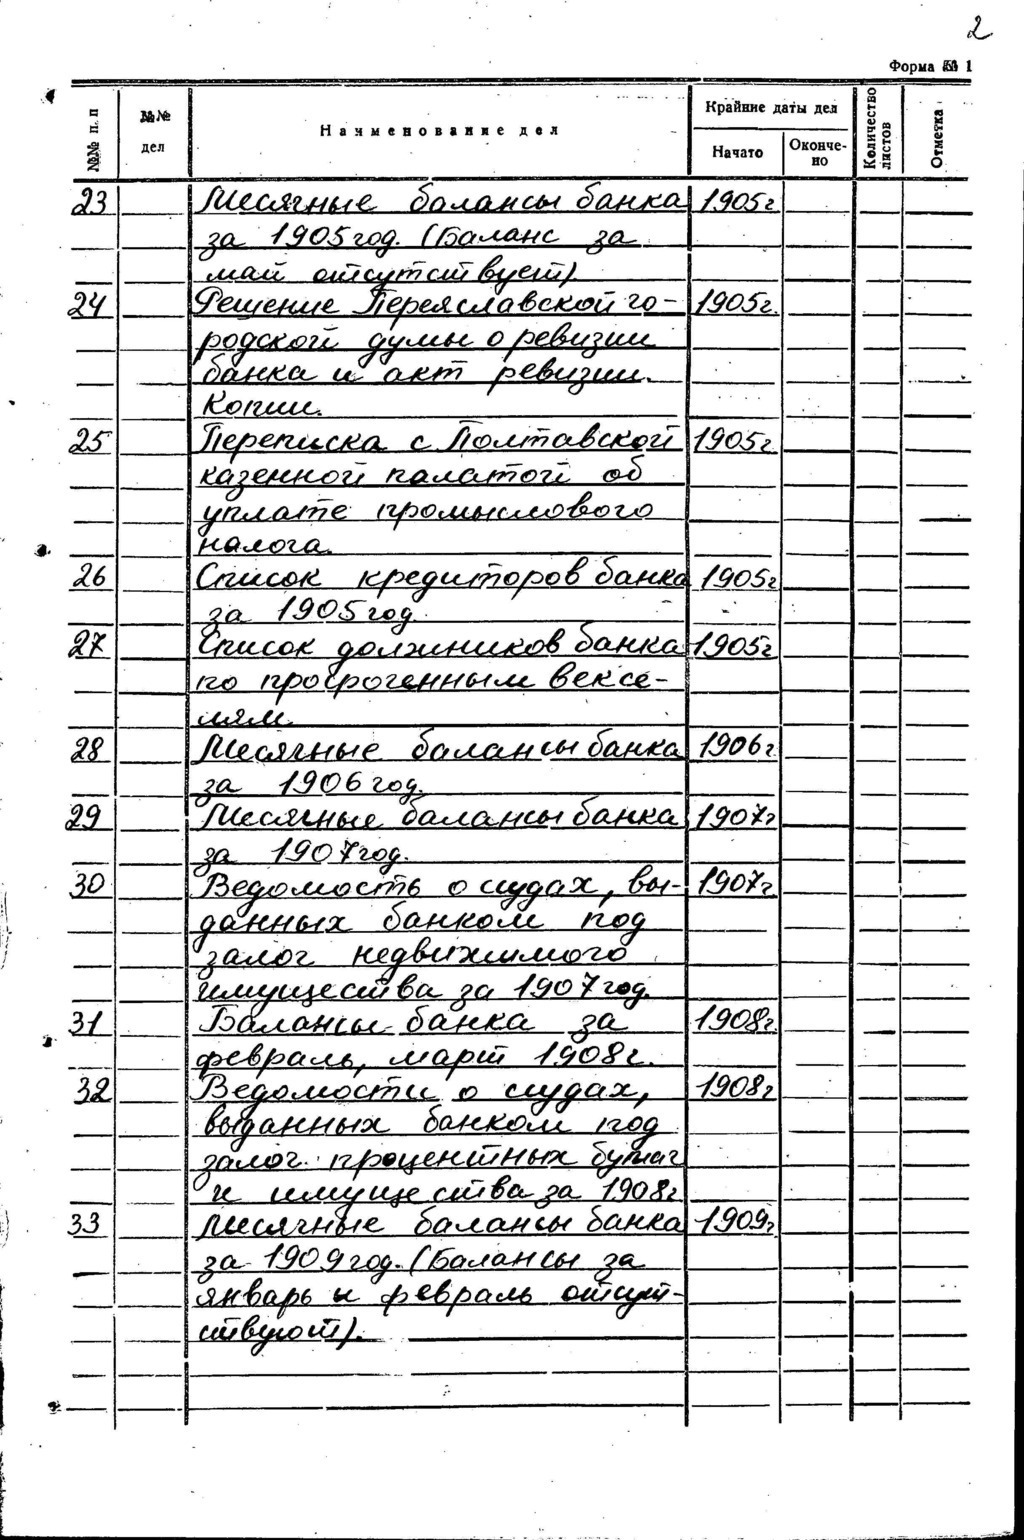 2
Форма № 1
№№ п. п
№№ дел
Наименование дел
Крайние даты дел
Начато
Окончено
Количество листов
Отметка
23 Месячные балансы банка 1905г
за 1905 год. (Баланс за
май отсутствует).
24 Решение Переяславской го- 1905г.
родской думы о ревизии
банка и акт ревизии.
Копии.
25 Переписка с Полтавской 1905г
казенной палатой об
уплате промыслового
налога.
26 Список кредиторов банка 1905г
за 1905 год
27 Список должников банка 1905г
по просроченным вексе-
лям.
28 Месячные балансы банка 1906г
за 1906 год.
29 Месячные балансы банка 1907г
за 1907 год.
30 Ведомость о ссудах, вы- 1907г
данных банком под
залог недвижимого
имущества за 1907 год.
31 Балансы банка за 1908г
февраль, март 1908г.
32 Ведомости о ссудах, 1908г
выданных банком под
залог процентных бумаг
и имущества за 1908г
33 Месячные балансы банка 1909г
за 1909 год. (Балансы за
январь и февраль отсут-
ствуют).